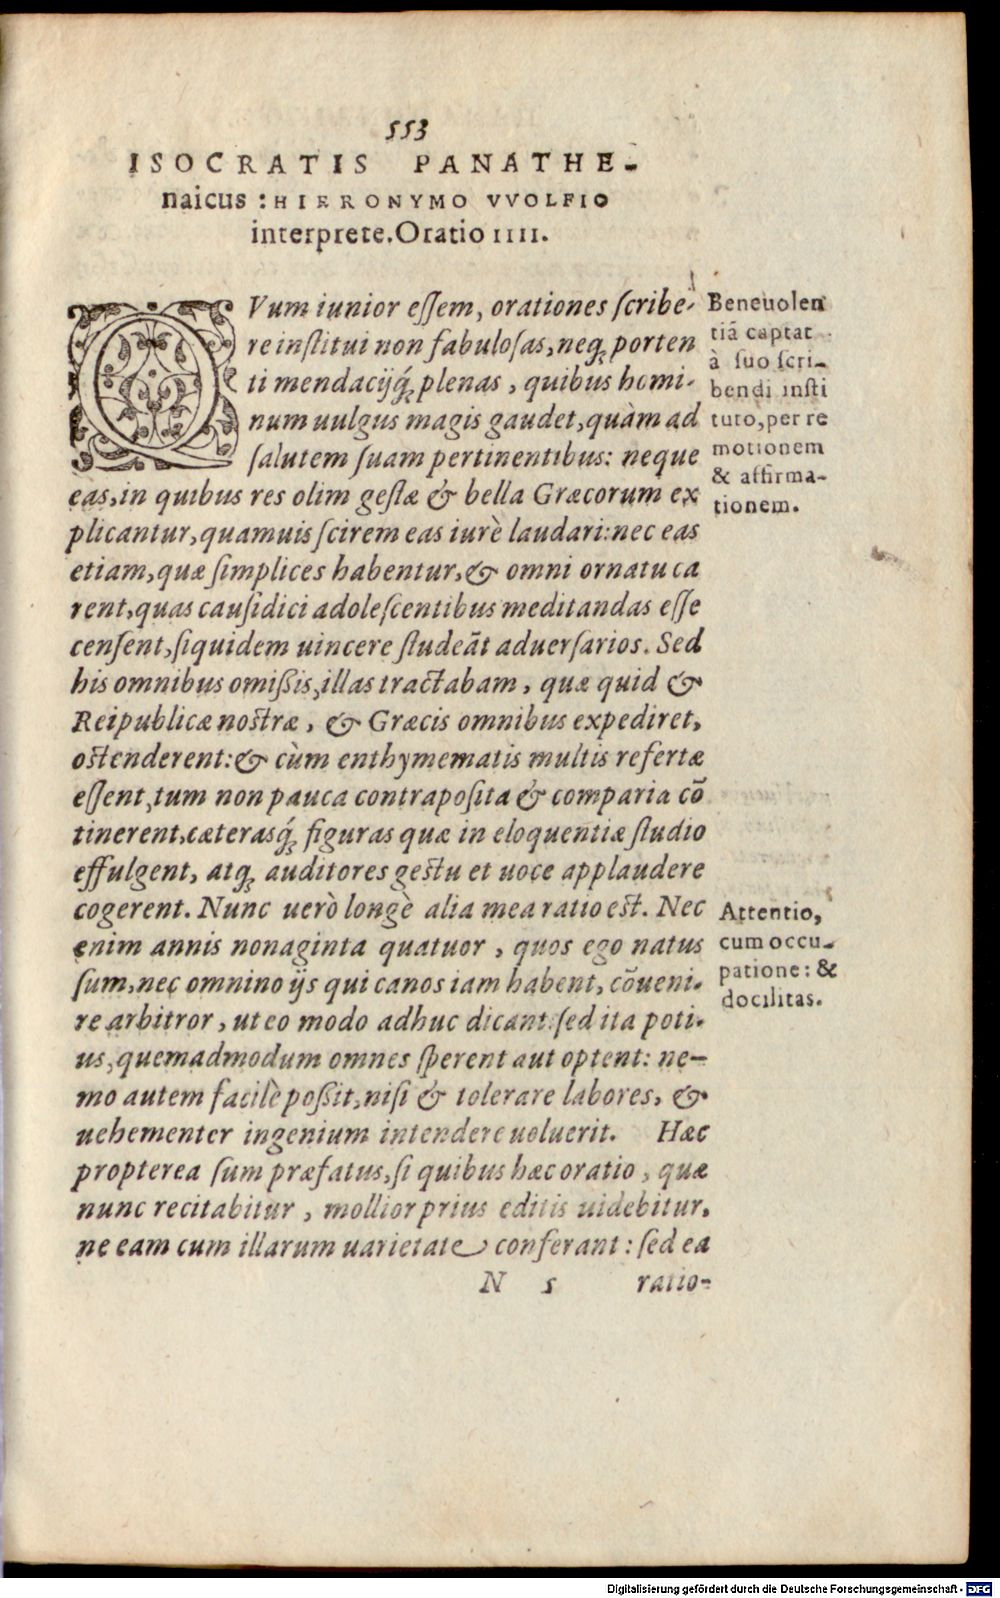 553
ISOCRATIS PANATHE-
naicus: HIERONYMO VVOLFIO
interprete. Oratio IIII.
QVum iunior eſſem, orationes ſcribe-
re inſtitui non fabuloſas, neq; porten
ti mendacijq́; plenas, quibus homi-
num uulgus magis gaudet, quàm ad
ſalutem ſuam pertinentibus: neque
eas, in quibus res olim geſtæ & bella Græcorum ex
plicantur, quamuis ſcirem eas iurè laudari: nec eas
etiam, quæ ſimplices habentur, & omni ornatu ca
rent, quas cauſidici adoleſcentibus meditandas eſſe
cenſent, ſiquidem uincere ſtudeãt aduerſarios. Sed
his omnibus omißis, illas tractabam, quæ quid &
Reipublicæ noſtræ, & Græcis omnibus expediret,
oſtenderent: & cùm enthymematis multis refertæ
eſſent, tum non pauca contrapoſita & comparia cõ
tinerent, cæterasq́; figuras quæ in eloquentiæ ſtudio
effulgent, atq; auditores geſtu et uoce applaudere
cogerent. Nunc uerò longè alia mea ratio eſt. Nec
enim annis nonaginta quatuor, quos ego natus
ſum, nec omnino ijs qui canos iam habent, cõueni-
re arbitror, ut eo modo adhuc dicant: ſed ita poti-
us, quemadmodum omnes ſperent aut optent: ne-
mo autem facilè poßit, niſi & tolerare labores, &
uehementer ingenium intendere uoluerit. Hæc
propterea ſum præfatus, ſi quibus hæc oratio, quæ
nunc recitabitur, mollior prius editis uidebitur,
ne eam cum illarum uarietate conferant: ſed ea
N 5 ratio-
Beneuolen
tiã captat
à ſuo ſcri-
bendi inſti
tuto, per re
motionem
& affirma-
tionem.
Attentio,
cum occu-
patione: &
docilitas.
Digitalisierung gefördert durch die Deutsche Forschungsgemeinschaft - DFG